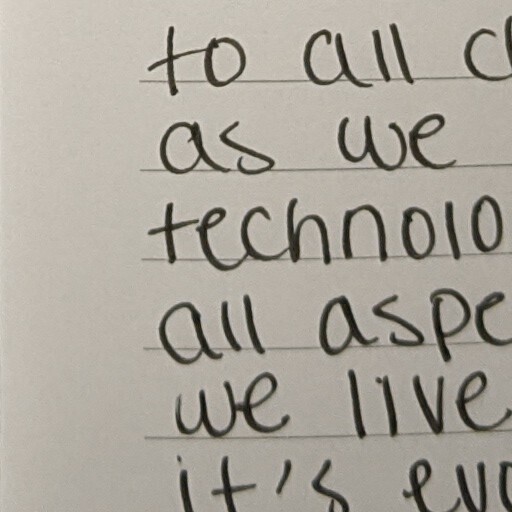 to all
as we
technolo
all aspe
we live
it's evo